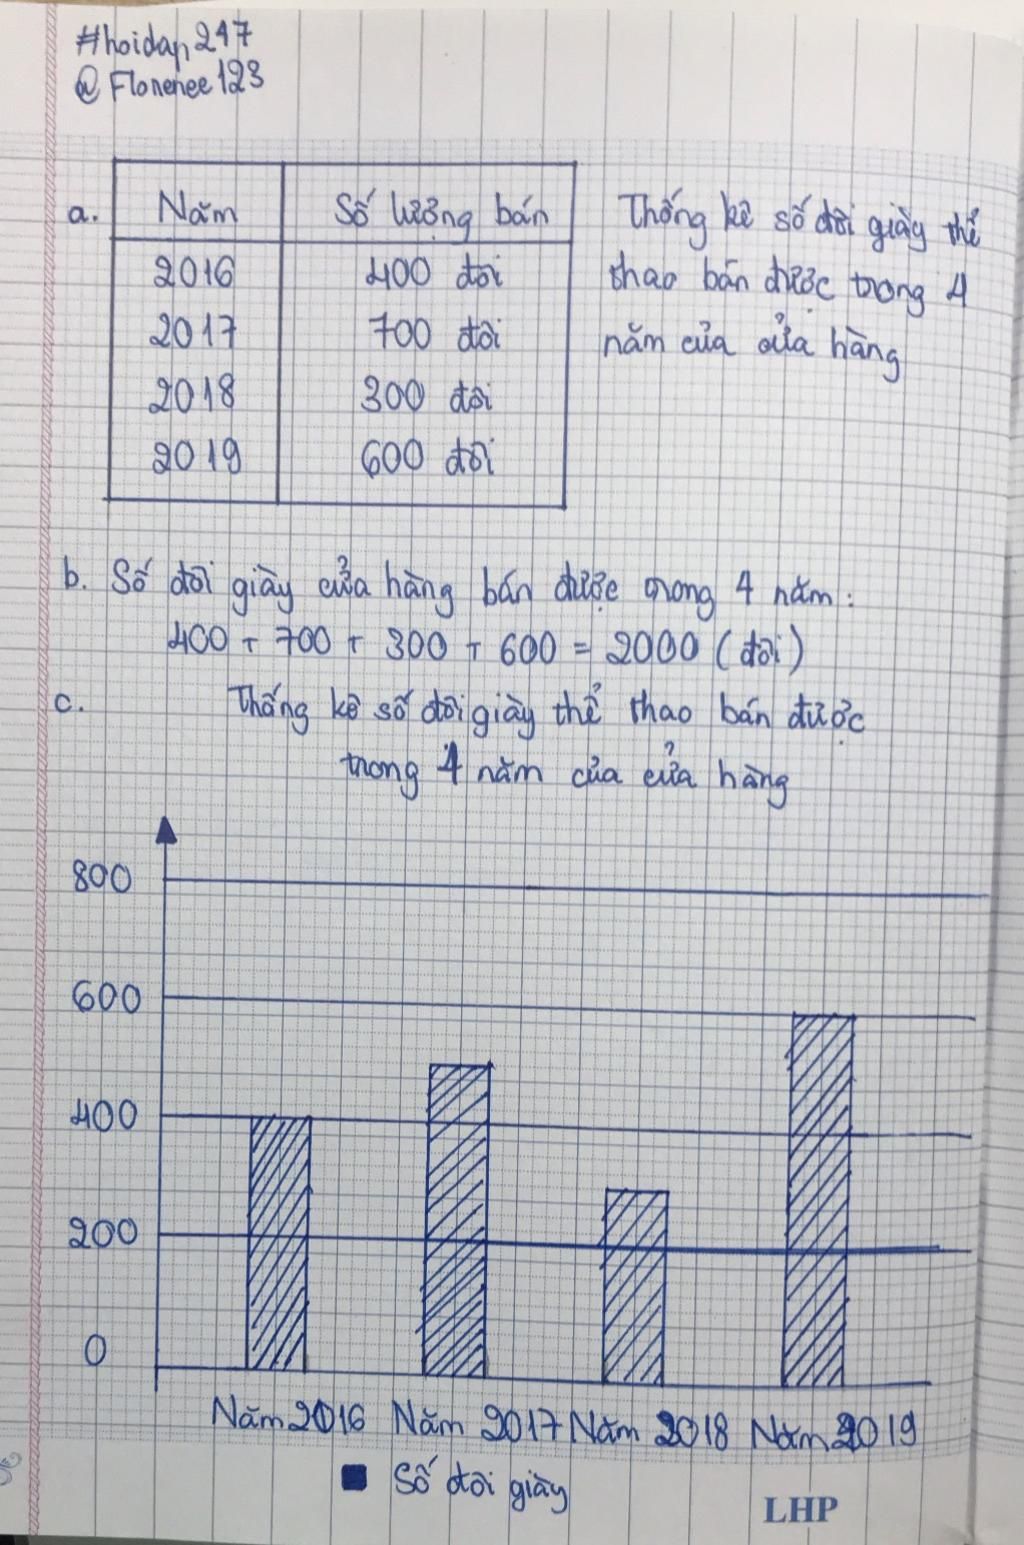 #hoidap247
@Florenee123
a.
Năm Số lượng bán
2016 400 đôi
2017 700 đôi
2018 300 đôi
2019 600 đôi
Thống kê số đôi giày thể
thao bán được trong 4
năm của cửa hàng
b. Số đôi giày cửa hàng bán được trong 4 năm:
400 + 700 + 300 + 600 = 2000 (đôi)
c. Thống kê số đôi giày thể thao bán được
trong 4 năm của cửa hàng
800
600
400
200
0
Năm 2016 Năm 2017 Năm 2018 Năm 2019
Số đôi giày
LHP